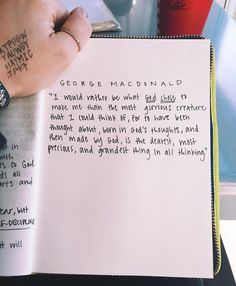 GEORGE MACDONALD
"I would rather be what God chose to
make me than the most glorious creature
that I could think of, for to have been
thought about, born in God's thoughts, and
then made by God, is the dearest, most
precious, and grandest thing in all thinking"
to God
all
and
but
will